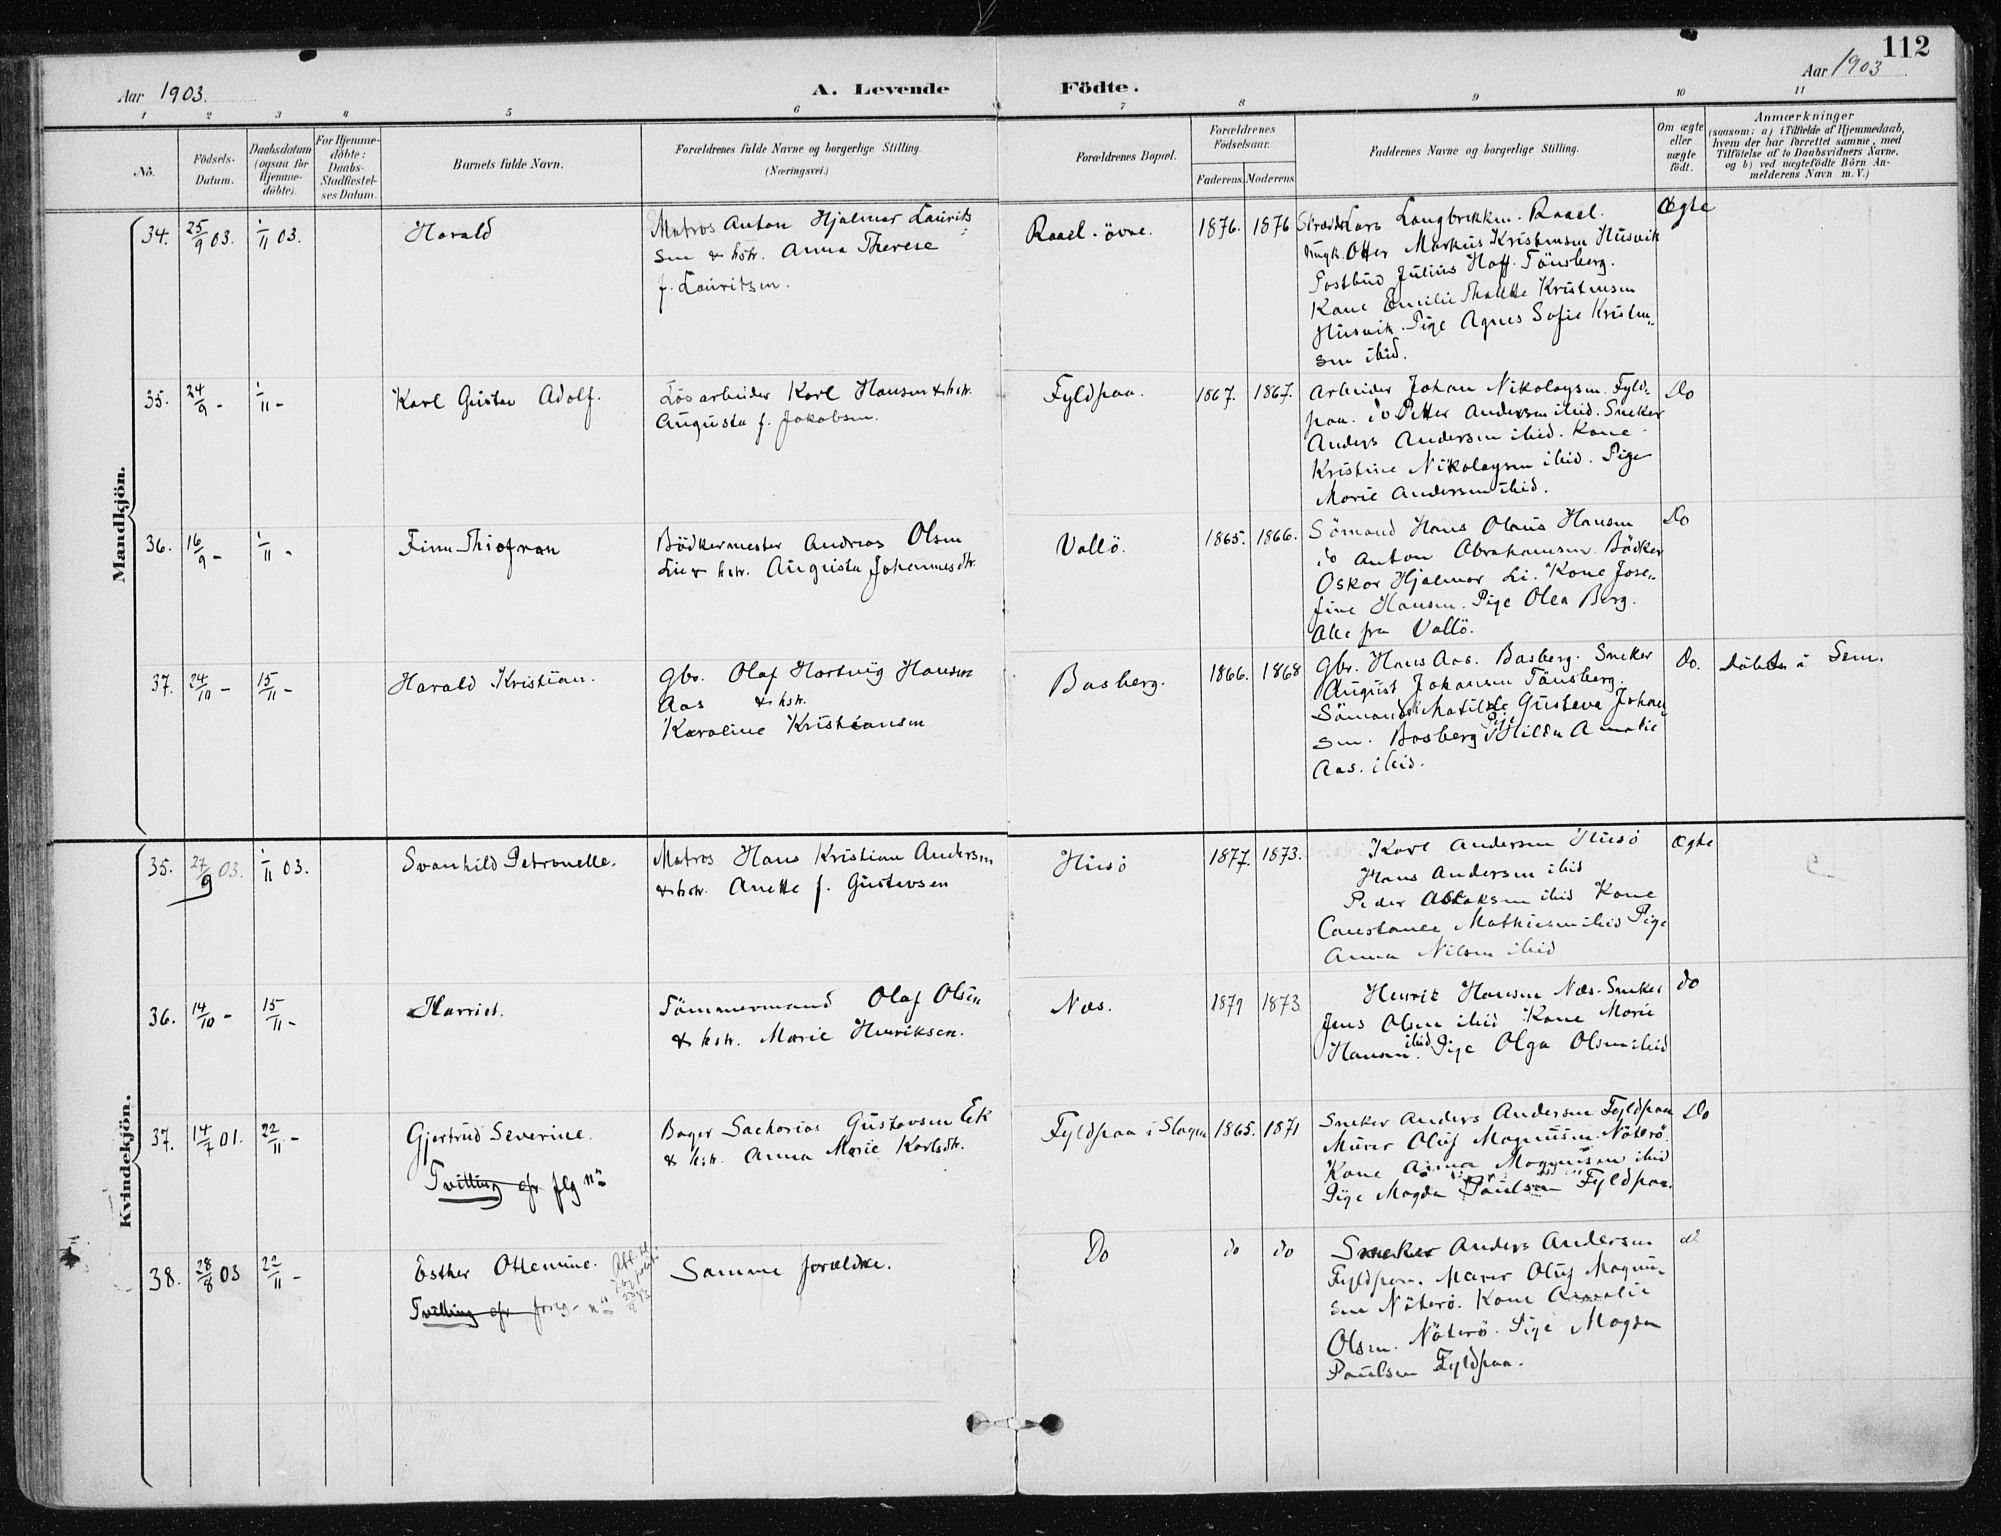 112
Aar 1903.
A. Levende
Födte.
Aar 1903
1 2 3 4 5 6 7 8 9 10 11
No.
Födsels-
Datum.
Daabsdatum
(ogsaa for
Hjemme-
döbte).
For Hjemme-
döbte:
Daabs-
Stadfæstel-
ses Datum.
Barnets fulde Navn.
Forældrenes fulde Navne og borgerlige Stilling.
(Næringsvei.)
Forældrenes Bopæl.
Forældrenes
Födselsaar.
Faderens. Moderens.
Faddernes Navne og borgerlige Stilling.
Om ægte
eller
uægte
födt.
Anmærkninger
(saasom: a) i Tilfælde af Hjemmedaab,
hvem der har forrettet samme, med
Tilföielse af to Daabsvidners Navne,
og b) ved uægtefödte Börn An-
melderens Navn m. V.)
Mandkjön.
34. 25/9 03. 1/11 03.
Harald
Matros Anton Hjalmar Laurits
sen & hstr. Anna Therese
f. Lauritsen.
Raael. övre.
1876. 1876
Lars Langbrekken. Raael.
Markus Kristensen Husvik
Postbud Julius Hoff. Tönsberg.
Kone Emilie Kristensen
Husvik. Pige Agnes Sofie Kristen-
sen ibid.
Ægte
35. 24/9 - 1/11 -
Karl Gustav Adolf.
Lösarbeider Karl Hansen & hstr.
Augusta f. Jakobsen.
Fyldpaa.
1867. 1867.
Arbeider Johan Nikolaysen. Fyld-
paa. do Petter Andersen ibid. Sneker
Anders Andersen ibid. Kone
Kristine Nikolaysen ibid. Pige
Marie Andersen ibid.
Do
36. 16/9 - 1/11 -
Finn Thiofran
Bödkermester Andreas Olsen
Lie & hstr. Augusta Johannesdtr.
Vallö.
1865. 1866.
Sömand Hans Olaus Hansen
do Anton Abrahamsen. Bödker
Oskar Hjalmar Li. Kone Jose-
fine Hansen. Pige Olea Berg.
Alle fra Vallö.
Do
37. 24/10 - 15/11 -
Harald Kristian.
Gbr. Olaf Hartvig Hansen
Aas & hstr.
Karoline Kristiansen
Basberg.
1866. 1868
Gbr. Hans Aas. Basberg. Sneker
August Johansen Tönsberg.
Matilde Gustava Johan
sen. Basberg Pige Hilda Amalie
Aas. ibid.
Do.
Döbt i Sem.
Kvindekjön.
35. 27/9 03. 1/11 03.
Svanhild Petronelle.
Matros Hans Kristian Andersen
& hstr. Anette f. Gustavsen
Husö
1877. 1873.
Karl Andersen Husö
Hans Andersen ibid
Peder ibid Kone
Constance Mathiesen ibid Pige
Anna Nilsen ibid
Ægte
36. 14/10 - 15/11 -
Harriet.
Tömmermand Olaf Olsen
& hstr. Marie Henriksen.
Næs.
1879 1873.
Henrik Hansen Næs. Sneker
Jens Olsen ibid Kone Marie
Hansen ibid. Pige Olga Olsen ibid
do
37. 14/7 01. 22/11 -
Gjertrud Severine.
Tvilling cfr flg no
Bager Sacharias Gustavsen Eek
& hstr. Anna Marie Karlsdtr.
Fyldpaa i Slagen
1865. 1871
Sneker Anders Andersen Fyldpaa
Murer Oluf Magnusen. Nöterö.
Kone Anna Magnusen ibid
Pige Magda Paulsen Fyldpaa.
Do
38. 28/8 03 22/11 -
Esther Ottemine.
Tvilling cfr
Samme forældre.
Do
do do
Sneker Anders Andersen
Fyldpaa. Murer Oluf Magnu-
sen Nöterö. Kone Amalie
Olsen. Nöterö. Pige Magda
Paulsen Fyldpaa.